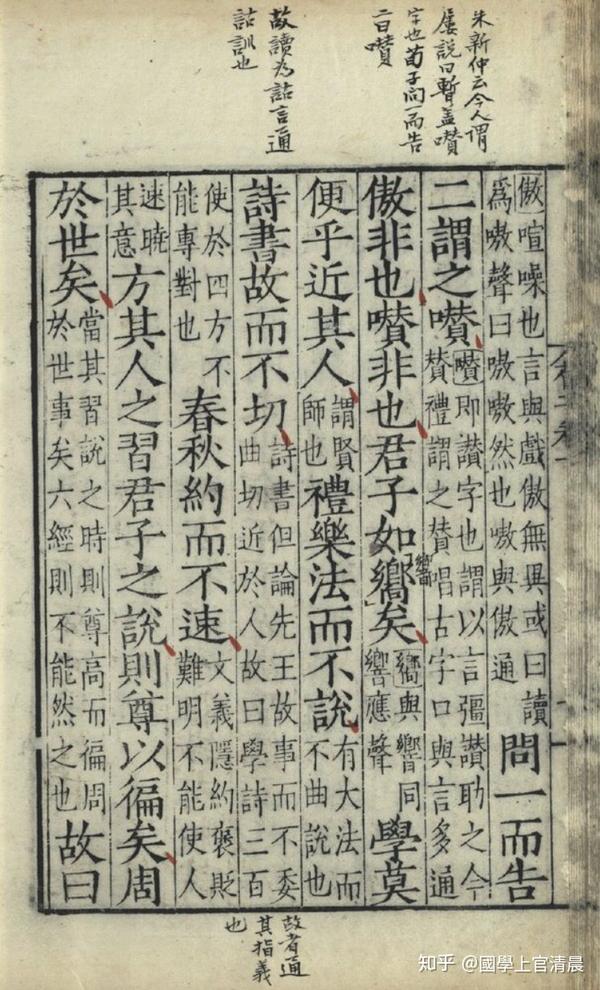 朱新仲云今人謂
屢說曰暫盖囋
字也荀子问一而告
二曰囋
故讀为詁言通
詁訓也
傲喧噪也言與戲傲無異或曰讀
爲嗷聲曰嗷嗷然也嗷與傲通
問一而告
二謂之囋
囋即讃字也謂以言彊讃助之今
贊禮謂之贊唱古字口與言多通
傲非也囋非也君子如嚮矣
響
嚮與響同
響應聲
學莫
便乎近其人
謂賢
師也
禮樂法而不說
有大法而
不曲說也
詩書故而不切
詩書但論先王故事而不委
曲切近於人故曰學詩三百
使於四方不
能專對也
春秋約而不速
文義隱約襃貶
難明不能使人
速曉
其意
方其人之習君子之說則尊以徧矣周
於世矣
當其習說之時則尊高而徧周
於世事矣六經則不能然之也
故曰
故者通
其指義
也
知乎 @國學上官清晨